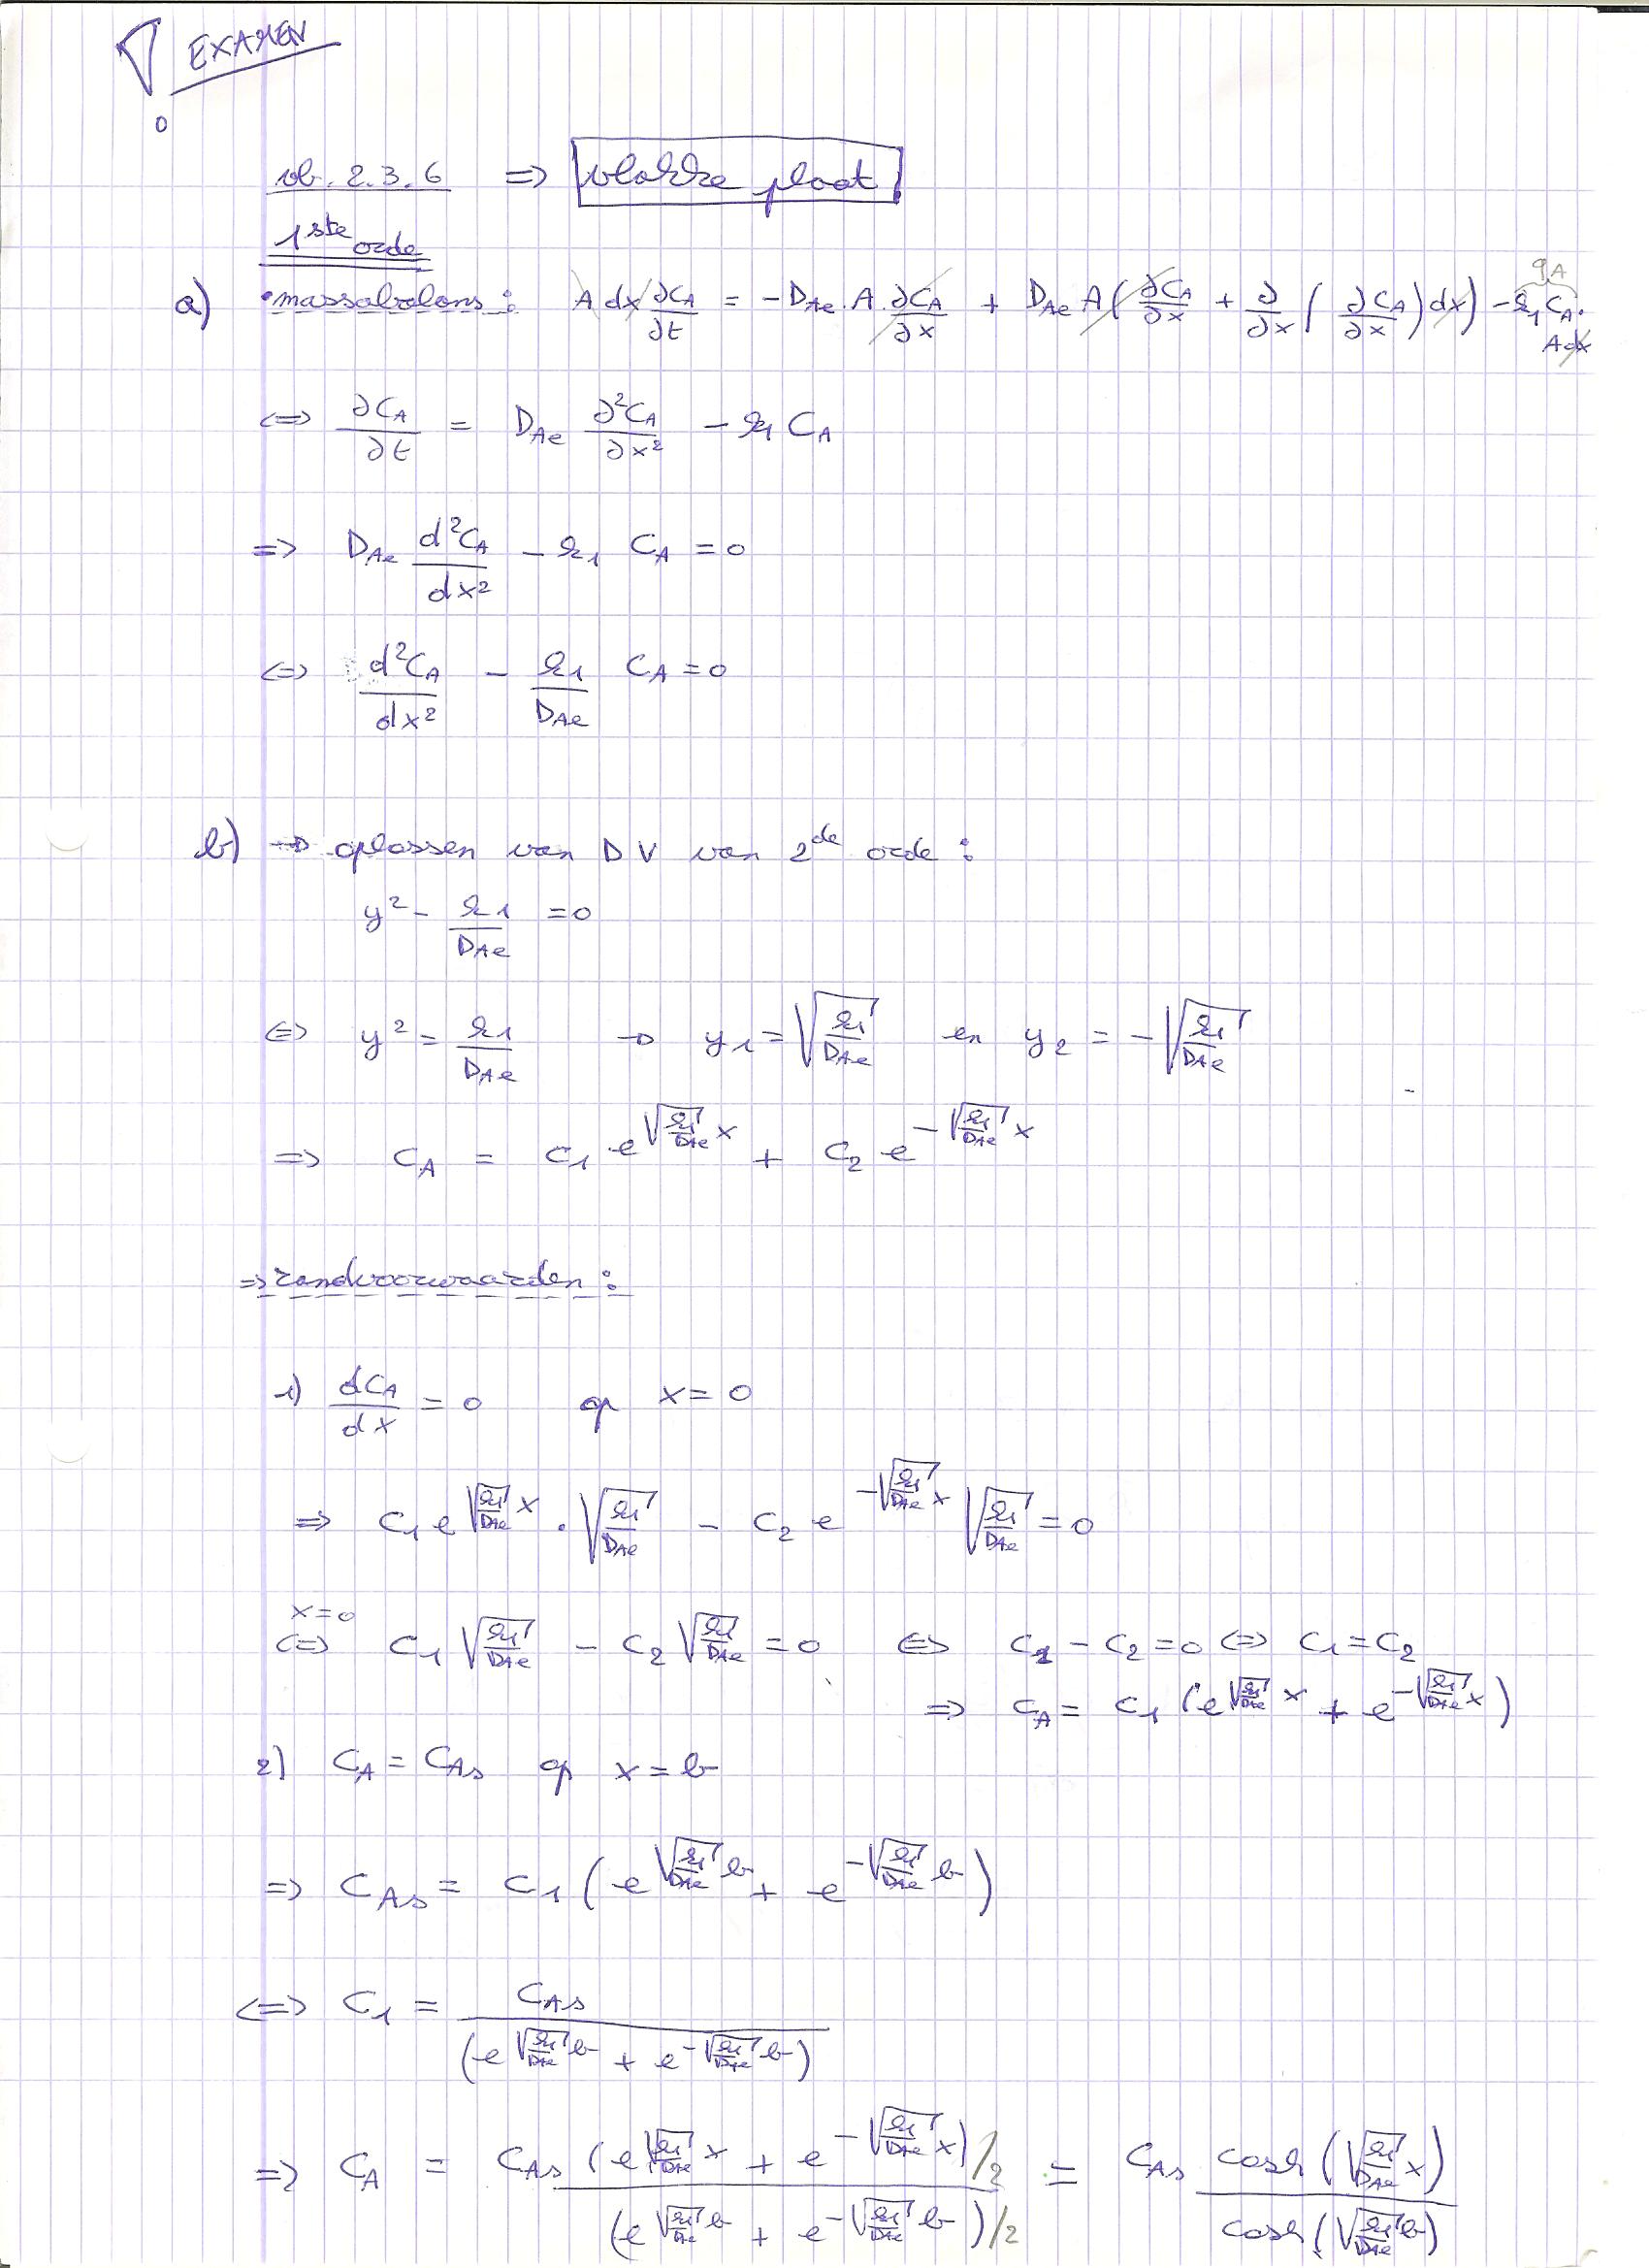 ! EXAMEN
vb. 2.3.6 => vlakke plaat
1ste orde
a) • massabalans : A dx ∂CA/∂t = -DAe . A . ∂CA/∂x + DAe A ( ∂CA/∂x + ∂/∂x ( ∂CA/∂x ) dx ) - k1 CA . A dx
qA
<=> ∂CA/∂t = DAe ∂²CA/∂x² - k1 CA
=> DAe d²CA/dx² - k1 CA = 0
<=> d²CA/dx² - k1/DAe CA = 0
b) → oplossen van DV van 2de orde :
y² - k1/DAe = 0
<=> y² = k1/DAe → y1 = √(k1/DAe) en y2 = -√(k1/DAe)
=> CA = C1 e^(√(k1/DAe) x) + C2 e^(-√(k1/DAe) x)
=> randvoorwaarden :
1) dCA/dx = 0 op x = 0
=> C1 e^(√(k1/DAe) x) . √(k1/DAe) - C2 e^(-√(k1/DAe) x) √(k1/DAe) = 0
x=0
<=> C1 √(k1/DAe) - C2 √(k1/DAe) = 0 <=> C1 - C2 = 0 <=> C1 = C2
=> CA = C1 (e^(√(k1/DAe) x) + e^(-√(k1/DAe) x))
2) CA = CAs op x = b
=> CAs = C1 ( e^(√(k1/DAe) b) + e^(-√(k1/DAe) b) )
<=> C1 = CAs / (e^(√(k1/DAe) b) + e^(-√(k1/DAe) b))
=> CA = CAs (e^(√(k1/DAe) x) + e^(-√(k1/DAe) x))/2 / (e^(√(k1/DAe) b) + e^(-√(k1/DAe) b))/2 = CAs cosh (√(k1/DAe) x) / cosh (√(k1/DAe) b)